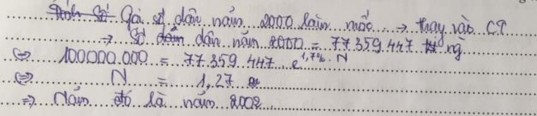 Gọi số dân năm 2000 làm mốc → thay vào CT
→ Số dân năm 2000 = 77 359 447 ng
⇔ 100000.000 = 77 359 447 . e^1,7% . N
⇔ N = 1,27
⇒ Năm đó là năm 2002